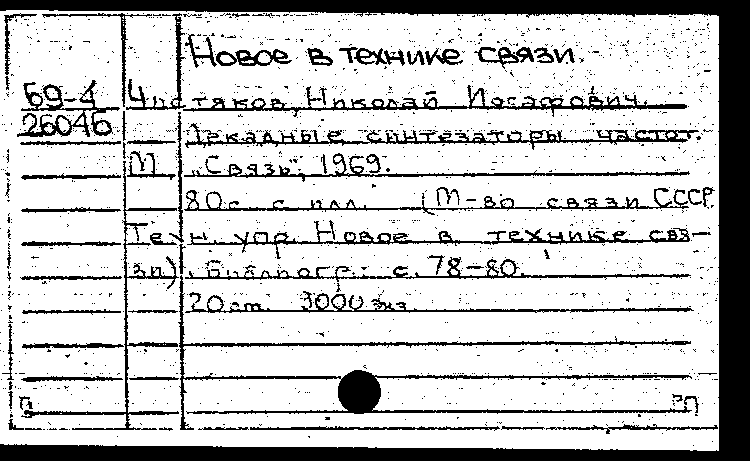 Новое в технике связи.
Б9-4 Чистяков, Николай Иосафович.
26046 Декадные синтезаторы частот.
М., "Связь", 1969.
80с. с илл. (М-во связи СССР.
Техн. упр. Новое в технике свя-
зи). Библиогр.: с. 78-80.
20 см. экз.